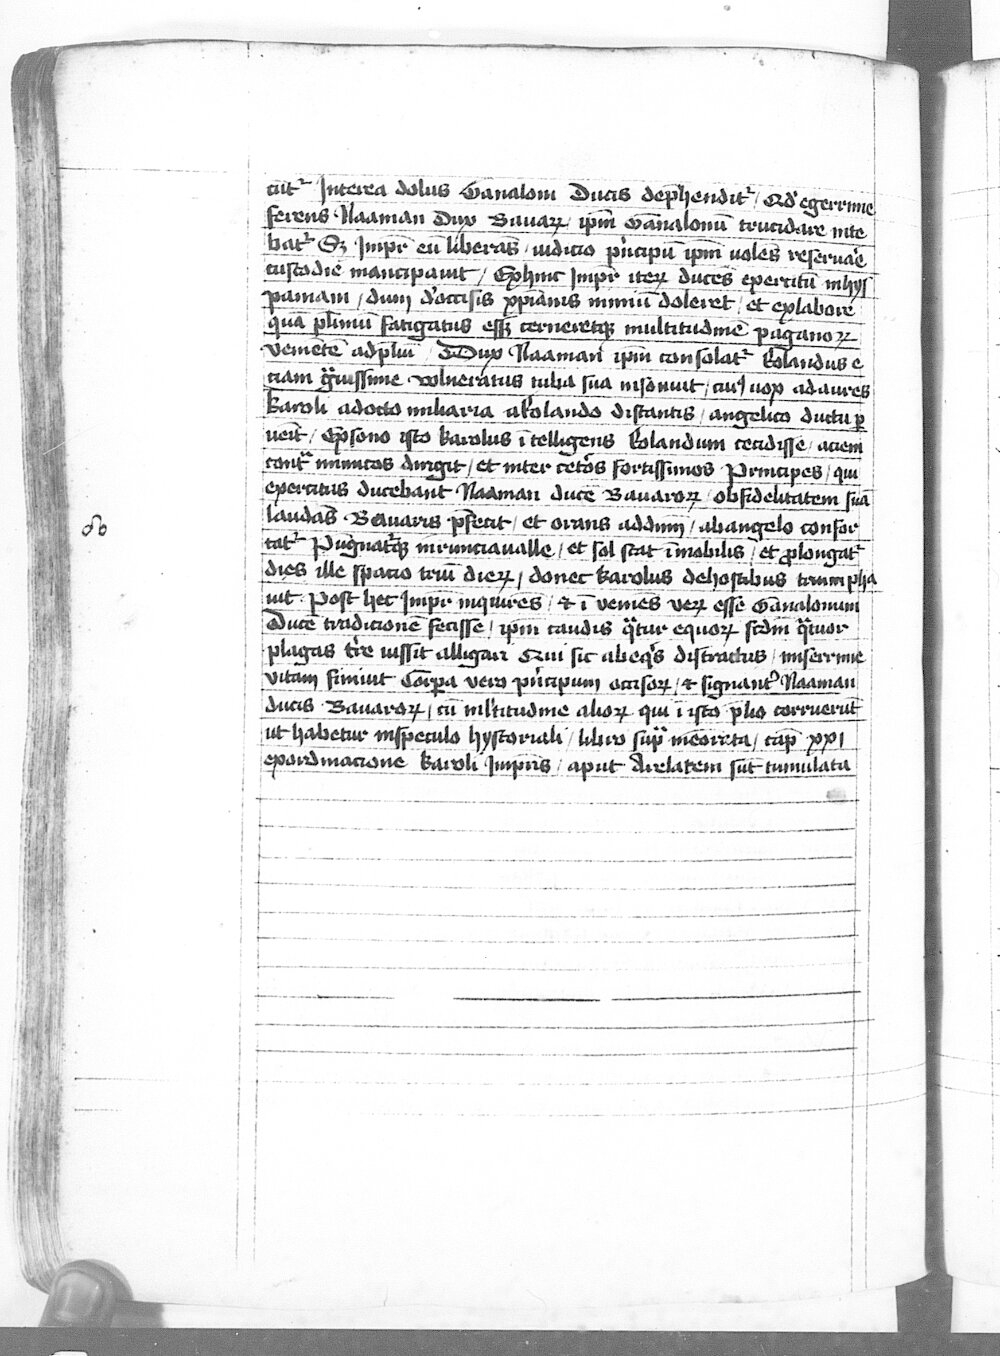 cūtᷣ Interea dolus Ganaloni Ducis dep̄hendit᷑ / Qd̓ egerrime
ferens Naaman Dux Bauaꝝ / ip̄m Ganalonū trucidare nite
bat᷑ Sꝫ Impr̄ eū liberās / iudicio p̓ncipū ip̄m uolēs reseruar̄e
custodie mancipauit / Exhinc Impr̄ iteꝝ ducēs exercitū in hys
paniam / dum d̓ occisis xp̄ianis nimiū doleret / et ex labore
quā pl̓imū fatigatus esset cerneretqꝫ multitudinē paganoꝝ
venientē ad p̄liū / Dux Naaman ip̄m consolat᷑ Rolandus e
ciam gͣuissime volneratus tuba sua insonuit / cuiꝰ uox ad aures
Karoli ad octo miliaria a Rolando distantis / angelico ductu ꝑ
uēit / Ex sono isto karolus ītelligens Rolandum cecidisse / aciem
contͣ inimicos dirigit / et inter ceteros fortissimos Principes / qui
exercitus ducebant Naaman ducē Bauaroꝝ / ob fidelitatem suā
laudās Bauaris p̄fecit / et orans ad dnm̄ / ab angelo confor
tat᷑ Pugnat᷑qꝫ in runciaualle / et sol stat īmobilis / et ꝓlongat᷑
dies ille spacio triū dieꝝ / donec karolus de hostibus triumpha
uit Post hec Impr̄ inquirēs / et īveniēs veꝝ esse Ganalonum
Ducē tradicionē fecisse / ip̄m caudis qͣtuor equoꝝ scdm̄ qͣtuor
plagas tr̄re iussit alligari Qui sic ab eqͥs distractus / miserrime
vitam finiuit Corꝑa vero p̓ncipum occisoꝝ / et signant᷑ Naaman
ducis Bauaroꝝ / cū ml̓titudine alioꝝ qui ī isto p̄lio corruerūt
ut habetur in speculo hystoriali / libro supͣ / cap̄ xxi
ex ordinacione karoli Imp̄ris / aput Arelatem sūt tumulata